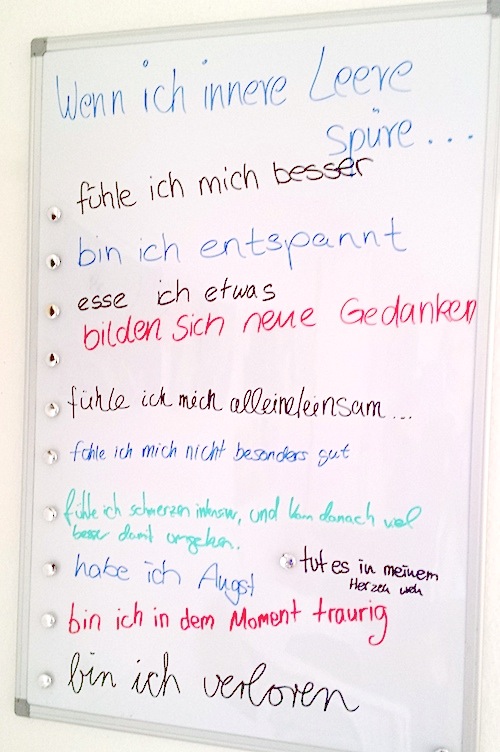 Wenn ich innere Leere
spüre...
fühle ich mich besser
bin ich entspannt
esse ich etwas
bilden sich neue Gedanken
fühle ich mich alleine/einsam...
fühle ich mich nicht besonders gut
fühle ich schmerzen intensiv, und kann danach viel
besser damit umgehen.
habe ich Angst
tut es in meinem
Herzen weh
bin ich in dem Moment traurig
bin ich verloren